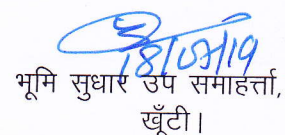 18/07/19
भूमि सुधार उप समाहर्त्ता,
खूँटी।